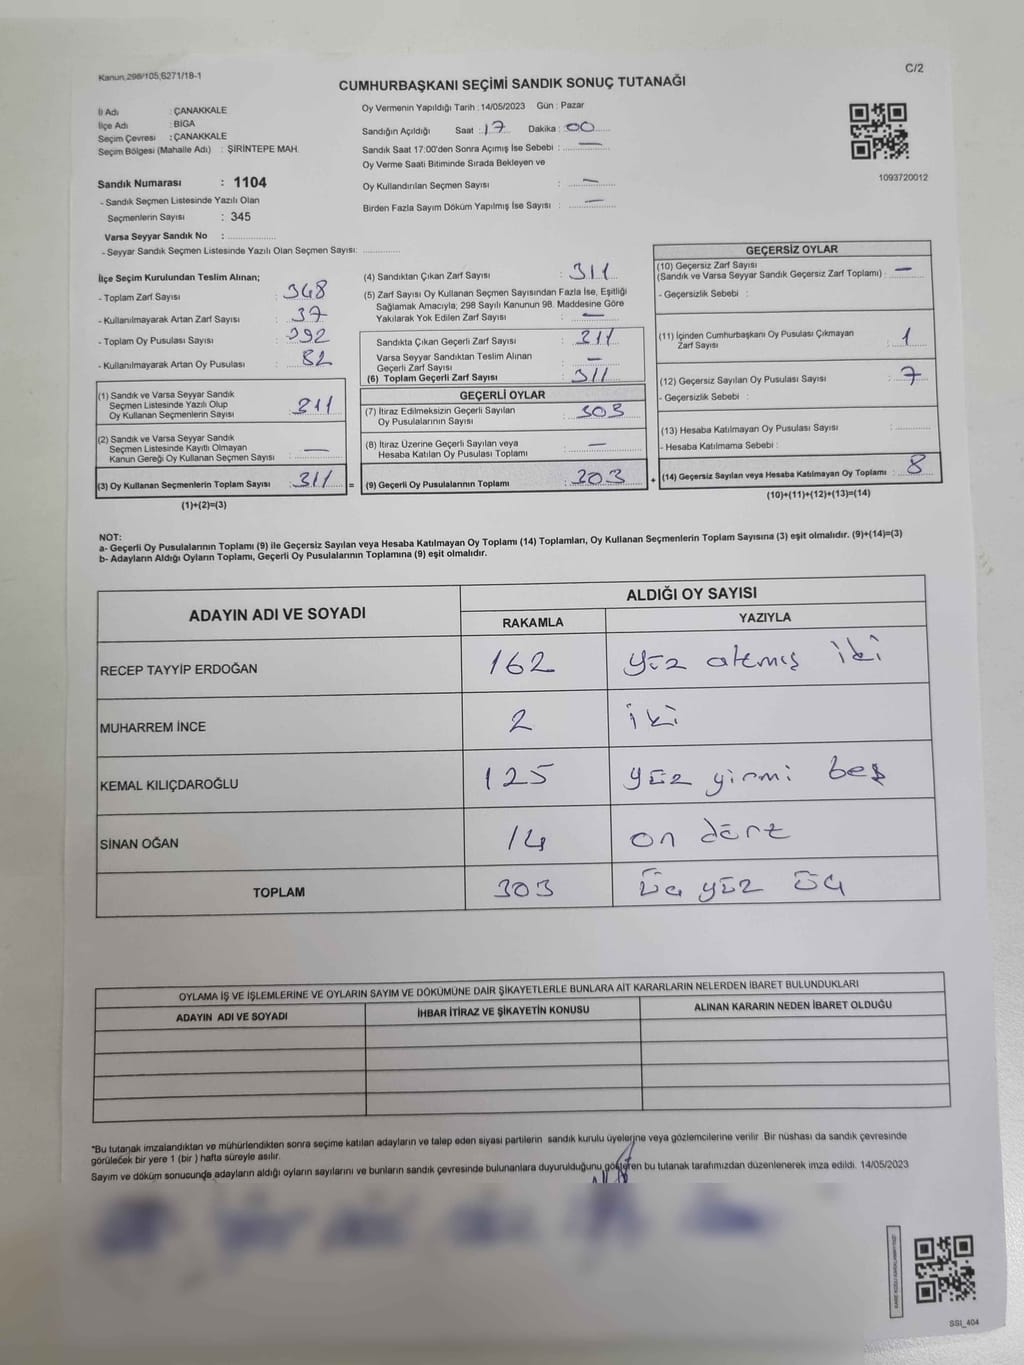 Kanun,298/105,6271/18-1
C/2
CUMHURBAŞKANI SEÇİMİ SANDIK SONUÇ TUTANAĞI
İl Adı : ÇANAKKALE
İlçe Adı : BİGA
Seçim Çevresi : ÇANAKKALE
Seçim Bölgesi (Mahalle Adı) : ŞİRİNTEPE MAH.
Sandık Numarası : 1104
- Sandık Seçmen Listesinde Yazılı Olan
Seçmenlerin Sayısı : 345
Varsa Seyyar Sandık No :
- Seyyar Sandık Seçmen Listesinde Yazılı Olan Seçmen Sayısı:
Oy Vermenin Yapıldığı Tarih : 14/05/2023 Gün : Pazar
Sandığın Açıldığı Saat : 17 Dakika : 00
Sandık Saat 17:00'den Sonra Açımış İse Sebebi : —
Oy Verme Saati Bitiminde Sırada Bekleyen ve
Oy Kullandırılan Seçmen Sayısı : —
Birden Fazla Sayım Döküm Yapılmış İse Sayısı : —
1093720012
İlçe Seçim Kurulundan Teslim Alınan;
- Toplam Zarf Sayısı : 348
- Kullanılmayarak Artan Zarf Sayısı : 37
- Toplam Oy Pusulası Sayısı : 392
- Kullanılmayarak Artan Oy Pusulası : 82
(1) Sandık ve Varsa Seyyar Sandık
Seçmen Listesinde Yazılı Olup
Oy Kullanan Seçmenlerin Sayısı : 311
(2) Sandık ve Varsa Seyyar Sandık
Seçmen Listesinde Kayıtlı Olmayan
Kanun Gereği Oy Kullanan Seçmen Sayısı : —
(3) Oy Kullanan Seçmenlerin Toplam Sayısı : 311 =
(1)+(2)=(3)
(4) Sandıktan Çıkan Zarf Sayısı : 311
(5) Zarf Sayısı Oy Kullanan Seçmen Sayısından Fazla İse, Eşitliği
Sağlamak Amacıyla; 298 Sayılı Kanunun 98. Maddesine Göre
Yakılarak Yok Edilen Zarf Sayısı : —
Sandıkta Çıkan Geçerli Zarf Sayısı : 311
Varsa Seyyar Sandıktan Teslim Alınan
Geçerli Zarf Sayısı : —
(6) Toplam Geçerli Zarf Sayısı : 311
GEÇERLİ OYLAR
(7) İtiraz Edilmeksizin Geçerli Sayılan
Oy Pusulalarının Sayısı : 303
(8) İtiraz Üzerine Geçerli Sayılan veya
Hesaba Katılan Oy Pusulası Toplamı : —
(9) Geçerli Oy Pusulalarının Toplamı : 303 +
GEÇERSİZ OYLAR
(10) Geçersiz Zarf Sayısı
(Sandık ve Varsa Seyyar Sandık Geçersiz Zarf Toplamı) : —
- Geçersizlik Sebebi :
(11) İçinden Cumhurbaşkanı Oy Pusulası Çıkmayan
Zarf Sayısı : 1
(12) Geçersiz Sayılan Oy Pusulası Sayısı : 7
- Geçersizlik Sebebi :
(13) Hesaba Katılmayan Oy Pusulası Sayısı :
- Hesaba Katılmama Sebebi :
(14) Geçersiz Sayılan veya Hesaba Katılmayan Oy Toplamı : 8
(10)+(11)+(12)+(13)=(14)
NOT:
a- Geçerli Oy Pusulalarının Toplamı (9) ile Geçersiz Sayılan veya Hesaba Katılmayan Oy Toplamı (14) Toplamları, Oy Kullanan Seçmenlerin Toplam Sayısına (3) eşit olmalıdır. (9)+(14)=(3)
b- Adayların Aldığı Oyların Toplamı, Geçerli Oy Pusulalarının Toplamına (9) eşit olmalıdır.
ADAYIN ADI VE SOYADI ALDIĞI OY SAYISI
RAKAMLA YAZIYLA
RECEP TAYYİP ERDOĞAN 162 yüz atmış iki
MUHARREM İNCE 2 iki
KEMAL KILIÇDAROĞLU 125 yüz yirmi beş
SİNAN OĞAN 14 on dört
TOPLAM 303 üç yüz üç
OYLAMA İŞ VE İŞLEMLERİNE VE OYLARIN SAYIM VE DÖKÜMÜNE DAİR ŞİKAYETLERLE BUNLARA AİT KARARLARIN NELERDEN İBARET BULUNDUKLARI
ADAYIN ADI VE SOYADI İHBAR İTİRAZ VE ŞİKAYETİN KONUSU ALINAN KARARIN NEDEN İBARET OLDUĞU
*Bu tutanak imzalandıktan ve mühürlendikten sonra seçime katılan adayların ve talep eden siyasi partilerin sandık kurulu üyelerine veya gözlemcilerine verilir. Bir nüshası da sandık çevresinde
görülecek bir yere 1 (bir ) hafta süreyle asılır.
Sayım ve döküm sonucunda adayların aldığı oyların sayılarını ve bunların sandık çevresinde bulunanlara duyurulduğunu gösteren bu tutanak tarafımızdan düzenlenerek imza edildi. 14/05/2023
SSI_404